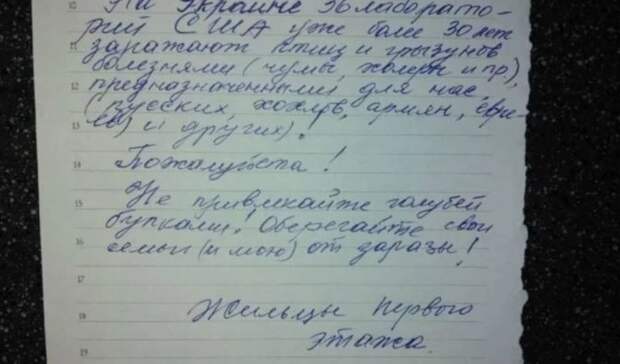 На Украине 36 лаборато-
рий США уже более 30 лет
заражают птиц и грызунов
болезнями (чумы, холеры и пр.),
предназначенными для нас,
(русских, хохлов, армян, евре-
ев) и других).
Пожалуйста!
Не привлекайте голубей
булками! Оберегайте свои
семьи (и мою) от заразы!
Жильцы первого
этажа.
10
11
12
13
14
15
16
17
18
19